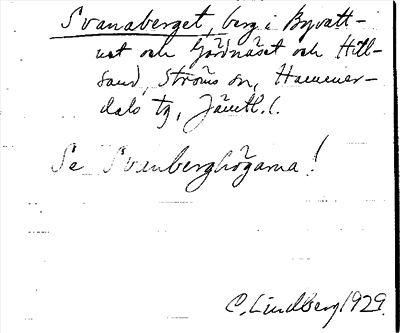 Svanaberget, berg i Byvatt-
net och Gärdnäset och Hill-
sand, Ströms sn, Hammer-
dals tg, Jämtl. l.
Se Svanberghögarna!
C. Lindberg 1929.